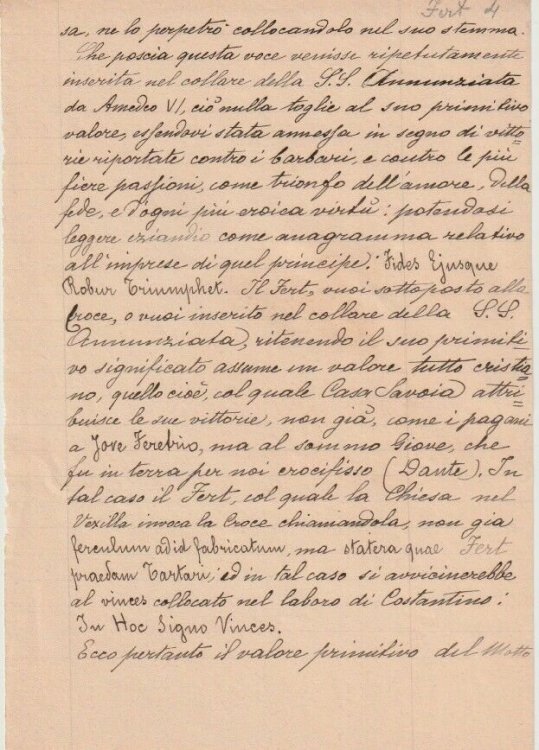 Fert 4
sa, ne lo perpetrò collocandolo nel suo stemma.
Che poscia questa voce venisse ripetutamente
inserita nel collare della S.S. Annunziata
da Amedeo VI, ciò nulla toglie al suo primitivo
valore, essendovi stata annessa in segno di vitto=
rie riportate contro i barbari, e contro le più
fiere passioni, come trionfo dell'amore, della
fede, e d'ogni più eroica virtù: potendosi
leggere eziandio come anagramma relativo
all'imprese di quel principe: Fides Ejusque
Robur Triumphet. Il Fert, vuoi sottoposto alla
Croce, o vuoi inserito nel collare della S.S.
Annunziata, ritenendo il suo primiti=
vo significato assume un valore tutto cristia=
no, quello cioè, col quale Casa Savoia attri=
buisce le sue vittorie, non già, come i pagani
a Jove Feretrio, ma al sommo Giove, che
fu in terra per noi crocifisso (Dante). In
tal caso il Fert, col quale la Chiesa nel
Vexilla invoca la Croce chiamandola, non gia
ferculum ad id fabricatum, ma statera quae Fert
praedam Tartari; ed in tal caso si avvicinerebbe
al vinces collocato nel laboro di Costantino:
In Hoc Signo Vinces.
Ecco pertanto il valore primitivo del Motto